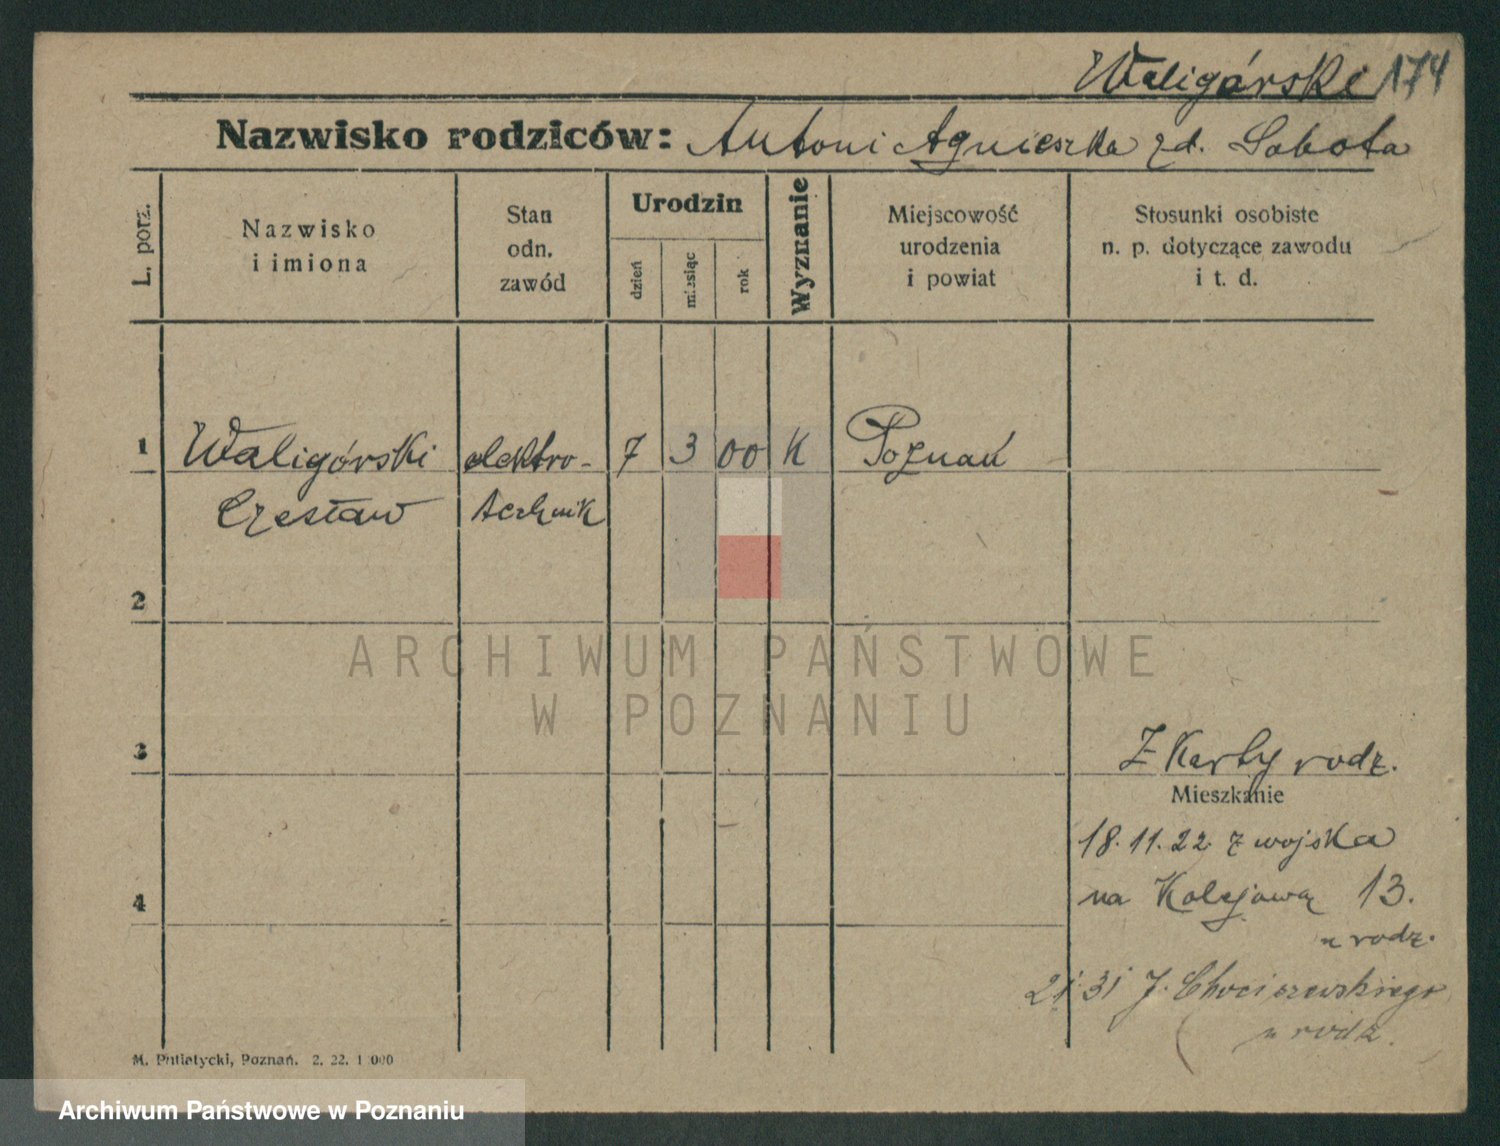 Waligórski 174
Nazwisko rodziców: Antoni Agnieszka zd. Sobota
L. porz.
Nazwisko
i imiona
Stan
odn.
zawód
Urodzin
dzień
miesiąc
rok
Wyznanie
Miejscowość
urodzenia
i powiat
Stosunki osobiste
n. p. dotyczące zawodu
i t. d.
1 Waligórski elektro- 7 3 00 K Poznań
Czesław technik
2
3
4
Z Karty rodz.
Mieszkanie
18.11.22. z wojska
na Kolejową 13.
u rodz.
31 J. Chociszewskiego
u rodz.
M. Putiatycki, Poznań. 2. 22. 1 000
ARCHIWUM PAŃSTWOWE
W POZNANIU
Archiwum Państwowe w Poznaniu